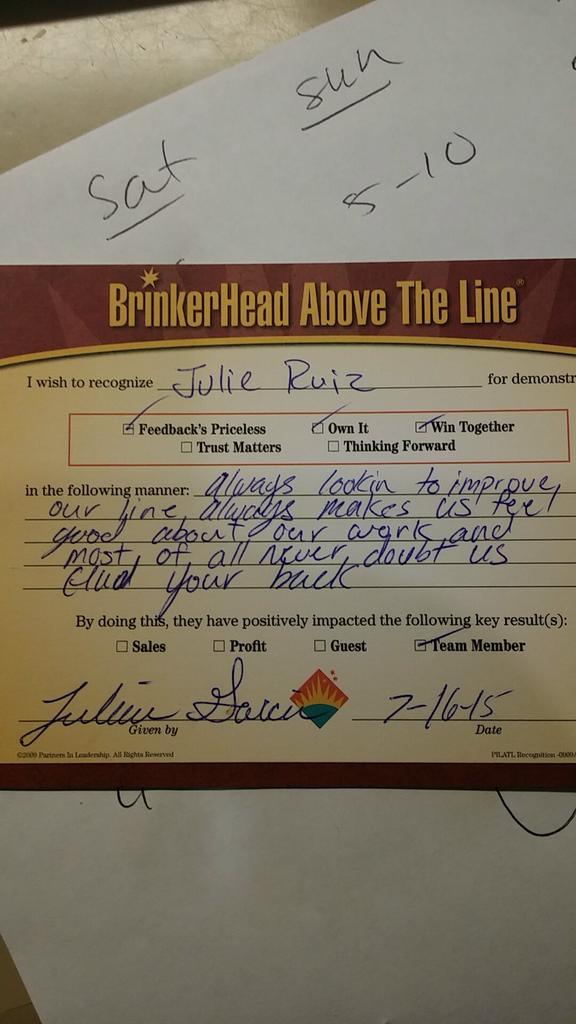 sun
Sat
5-10
BrinkerHead Above The Line®
I wish to recognize Julie Ruiz for demonstr
☑ Feedback's Priceless ☑ Own It ☑ Win Together
☐ Trust Matters ☐ Thinking Forward
in the following manner: always lookin to improve,
our line, always makes us feel
good about our work and
most of all never doubt us
Glad your back
By doing this, they have positively impacted the following key result(s):
☐ Sales ☐ Profit ☐ Guest ☑ Team Member
Garcia 7-16-15
Given by Date
©2009 Partners In Leadership. All Rights Reserved PILATL Recognition -0909